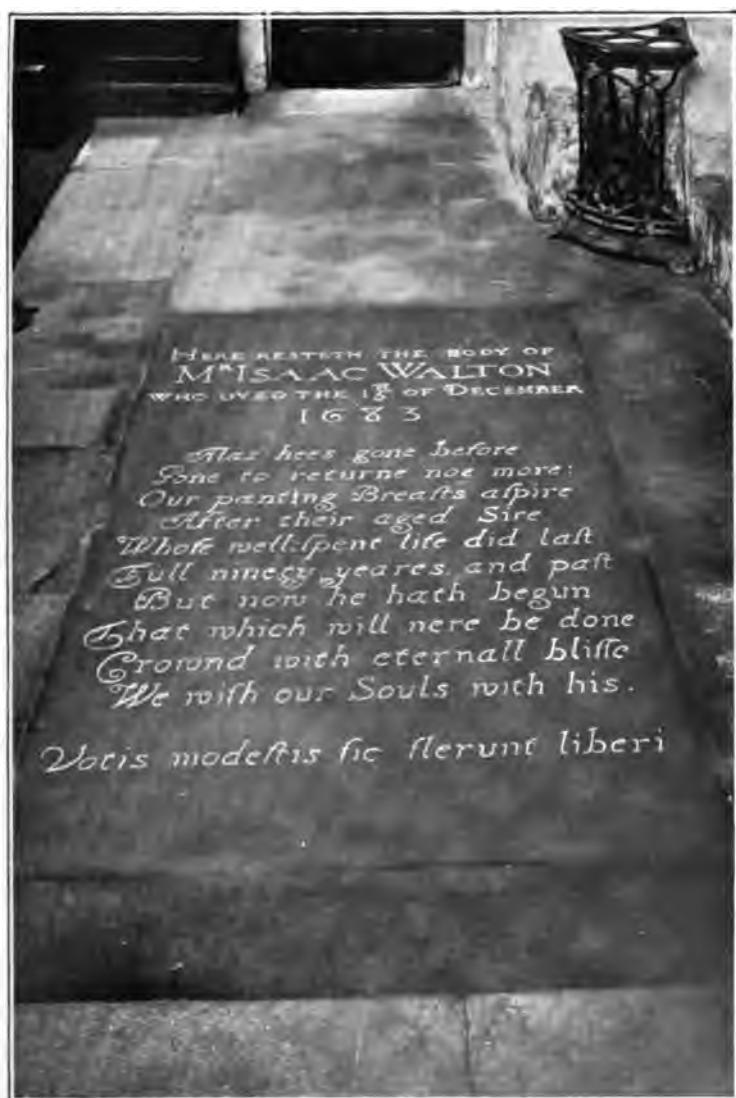 HERE RESTETH THE BODY OF
Mʀ ISAAC WALTON
WHO DYED THE 15ᵗʰ OF DECEMBER
1683
Alas hees gone before
Gone to returne noe more:
Our panting Breaſts aſpire
After their aged Sire
Whoſe well:ſpent life did laſt
Full ninety yeares and paſt
But now he hath begun
That which will nere be done
Crownd with eternall bliſſe
We wiſh our Souls with his.
Votis modeſtis ſic flerunt liberi